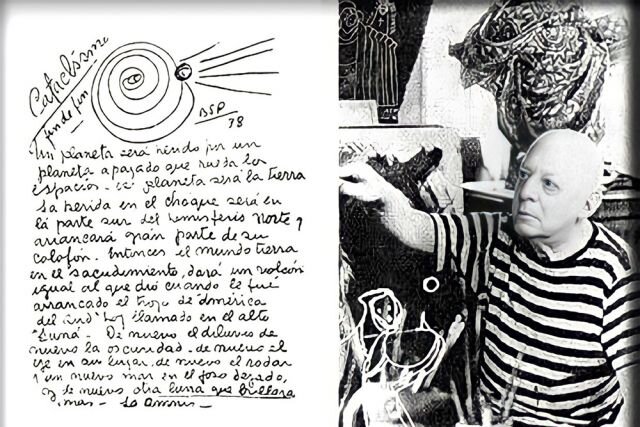 Cataclismo
fin de fin
BSP
38
Un planeta será herido por un
planeta apagado que rueda los
espacios - planeta será la tierra
La herida en el choque será en
la parte sur del hemisferio Norte y
arrancará gran parte de su
colofón. Entonces el mundo tierra
en el sacudimiento, dará un volcón
igual al que dió cuando le fué
arrancado el trozo de América
del Sud hoy llamado en el alto
"Luna" - De nuevo el diluvio de
nuevo la oscuridad - de nuevo el
eje en su lugar, de nuevo el rodar
y un nuevo mar en el foso dejado,
y de nuevo otra luna que brillara
mas -